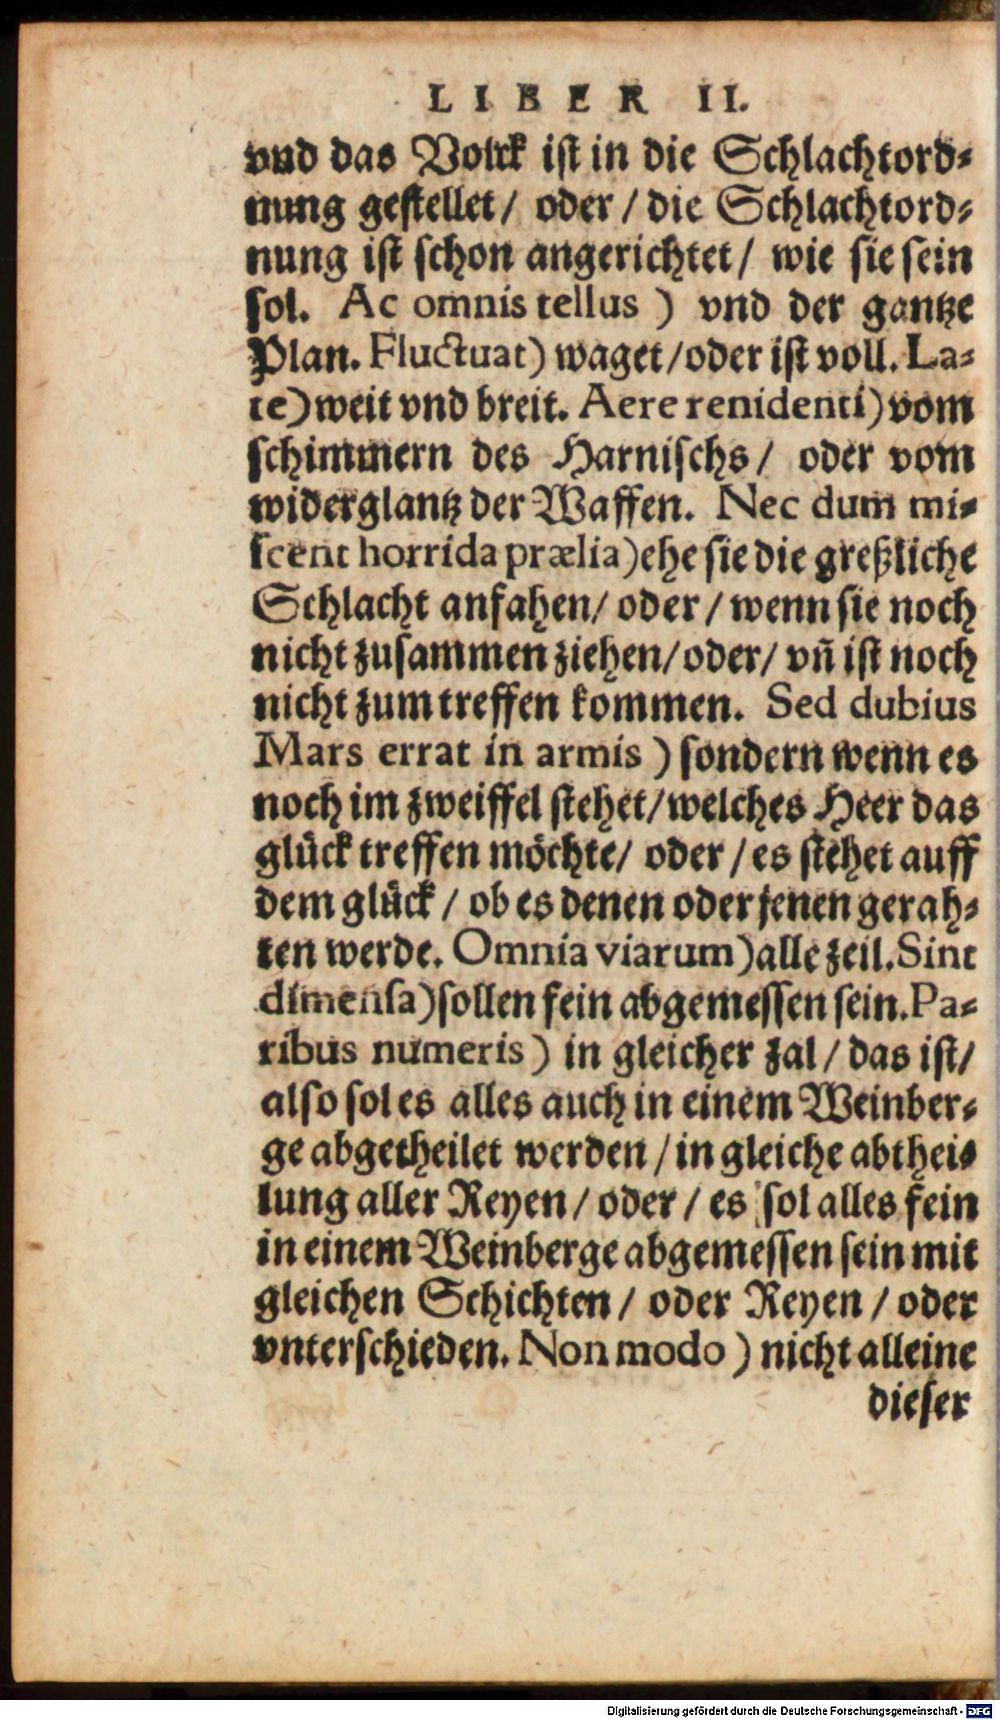 LIBER II.
vnd das Volck ist in die Schlachtord-
nung gestellet/ oder / die Schlachtord-
nung ist schon angerichtet/ wie sie sein
sol. Ac omnis tellus ) vnd der gantze
Plan. Fluctuat) waget/oder ist voll. La-
te) weit vnd breit. Aere renidenti) vom
schimmern des Harnischs/ oder vom
widerglantz der Waffen. Nec dum mi-
scent horrida prælia) ehe sie die greßliche
Schlacht anfahen/ oder / wenn sie noch
nicht zusammen ziehen/oder/ vñ ist noch
nicht zum treffen kommen. Sed dubius
Mars errat in armis ) sondern wenn es
noch im zweiffel stehet/welches Heer das
glück treffen möchte/ oder / es stehet auff
dem glück / ob es denen oder jenen gerah-
ten werde. Omnia viarum) alle zeil. Sint
dimensa) sollen fein abgemessen sein. Pa-
ribus numeris ) in gleicher zal / das ist/
also sol es alles auch in einem Weinber-
ge abgetheilet werden / in gleiche abthei-
lung aller Reyen / oder / es sol alles fein
in einem Weinberge abgemessen sein mit
gleichen Schichten / oder Reyen / oder
vnterschieden. Non modo ) nicht alleine
dieser
Digitalisierung gefördert durch die Deutsche Forschungsgemeinschaft - DFG